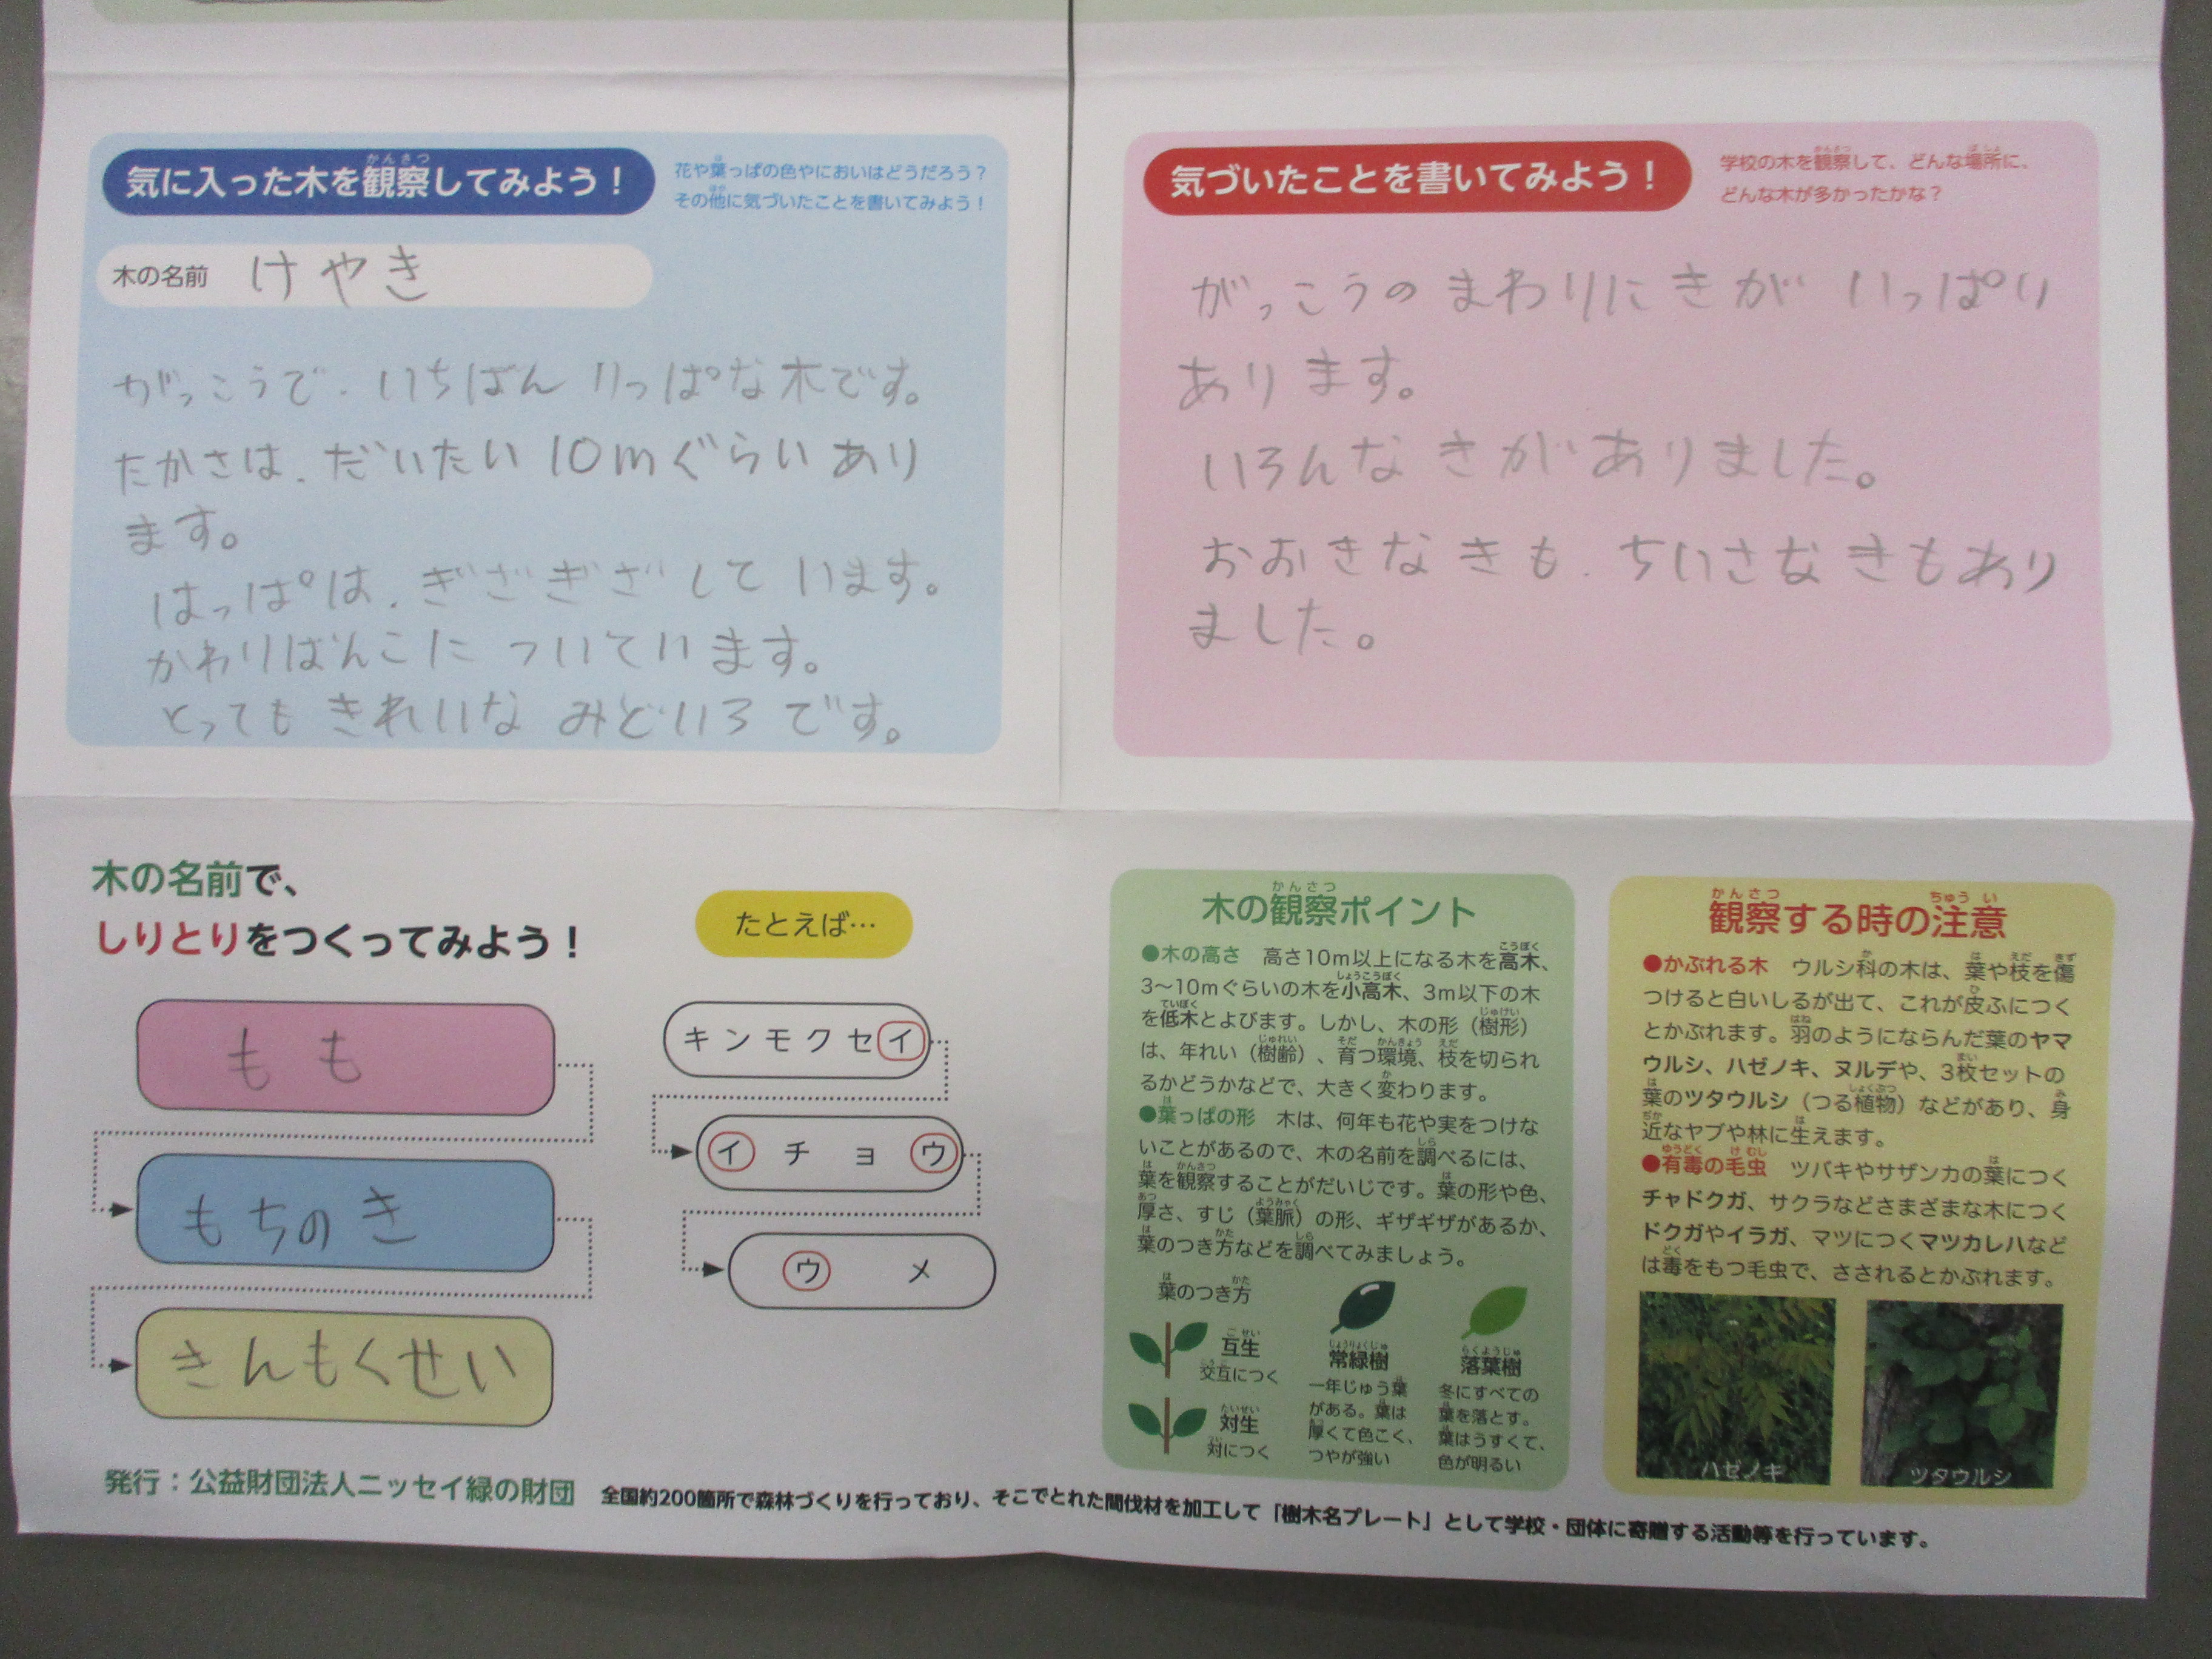 気に入った木を観察してみよう！
花や葉っぱの色やにおいはどうだろう？
その他に気づいたことを書いてみよう！
木の名前 けやき
がっこうで、いちばん りっぱな木です。
たかさは、だいたい 10mぐらい あり
ます。
はっぱは、ぎざぎざ して います。
かわりばんこに ついています。
とっても きれいな みどいろ です。
気づいたことを書いてみよう！
学校の木を観察して、どんな場所に、
どんな木が多かったかな？
がっこうの まわりに きが いっぱい
あり ます。
いろんな きが ありました。
おおきな きも、ちいさな きもあり
ました。
木の名前で、
しりとりをつくってみよう！
もも
もちのき
きんもくせい
たとえば…
キンモクセイ
イチョウ
ウメ
木の観察ポイント
●木の高さ 高さ10m以上になる木を高木、
3〜10mぐらいの木を小高木、3m以下の木
を低木とよびます。しかし、木の形（樹形）
は、年れい（樹齢）、育つ環境、枝を切られ
るかどうかなどで、大きく変わります。
●葉っぱの形 木は、何年も花や実をつけな
いことがあるので、木の名前を調べるには、
葉を観察することがだいじです。葉の形や色、
厚さ、すじ（葉脈）の形、ギザギザがあるか、
葉のつき方などを調べてみましょう。
葉のつき方
互生
交互につく
対生
対につく
常緑樹
一年じゅう葉
がある。葉は
厚くて色こく、
つやが強い
落葉樹
冬にすべての
葉を落とす。
葉はうすくて、
色が明るい
観察する時の注意
●かぶれる木 ウルシ科の木は、葉や枝を傷
つけると白いしるが出て、これが皮ふにつく
とかぶれます。羽のようにならんだ葉のヤマ
ウルシ、ハゼノキ、ヌルデや、3枚セットの
葉のツタウルシ（つる植物）などがあり、身
近なヤブや林に生えます。
●有毒の毛虫 ツバキやサザンカの葉につく
チャドクガ、サクラなどさまざまな木につく
ドクガやイラガ、マツにつくマツカレハなど
は毒をもつ毛虫で、さされるとかぶれます。
ハゼノキ
ツタウルシ
発行：公益財団法人ニッセイ緑の財団 全国約200箇所で森林づくりを行っており、そこでとれた間伐材を加工して「樹木名プレート」として学校・団体に寄贈する活動等を行っています。